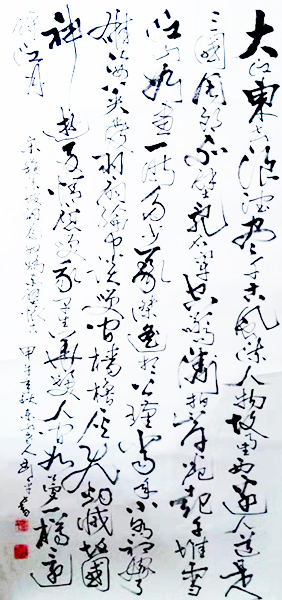 大江東去浪淘盡千古風流人物故壘西邊人道是
三國周郎赤壁亂石穿空驚濤拍岸捲起千堆雪
江山如畫一時多少豪傑遙想公瑾當年小喬初嫁了
雄姿英發羽扇綸巾談笑間檣櫓灰飛煙滅故國
神遊多情應笑我早生華髮人間如夢一樽還
酹江月